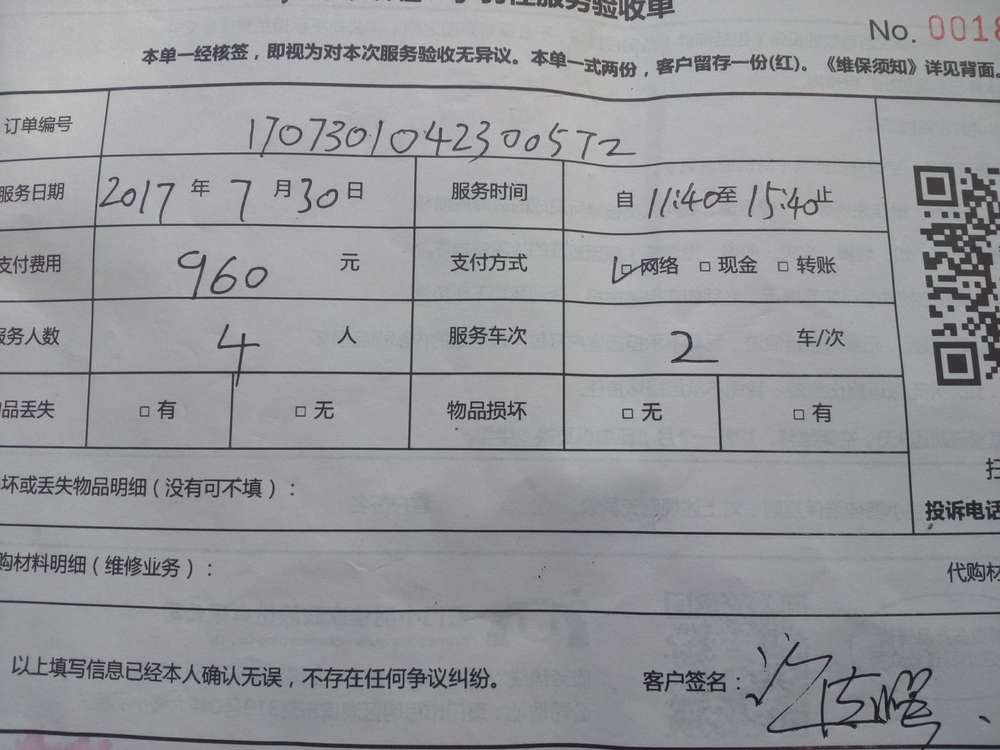 服务验收单
No. 0018
本单一经核签，即视为对本次服务验收无异议。本单一式两份，客户留存一份(红)。《维保须知》详见背面。
订单编号 170730104230057 2
服务日期 2017 年 7 月 30 日 服务时间 自 11:40 至 15:40 止
支付费用 960 元 支付方式 ☑ 网络 □ 现金 □ 转账
服务人数 4 人 服务车次 2 车/次
品丢失 □ 有 □ 无 物品损坏 □ 无 □ 有
坏或丢失物品明细（没有可不填）：
投诉电话
购材料明细（维修业务）： 代购材
以上填写信息已经本人确认无误，不存在任何争议纠纷。 客户签名：